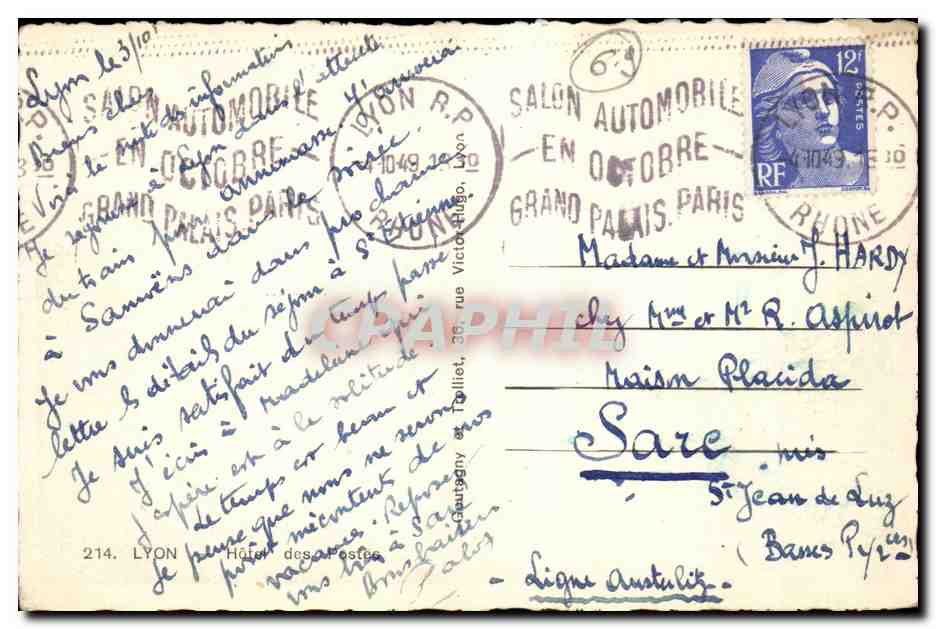 Lyon le 3/10
Biens chers
Voici le mot des informations
Je séjourne à Lyon dans l'attente
du train qui annoncera
à Samoëns dans la soirée.
Je vous donnerai dans prochaine
lettre les détails du séjour à St Etienne.
Je suis satisfait du temps passé
J'écris à Madeleine qui
j'espère est à la solitude
Le temps est beau et
je pense que nous ne serons
point mécontents de nos
vacances. Reposez
vous bien à Sare
Bons baisers
214. LYON Hôtel des Postes
Goutagny et Tolliet, 36, rue Victor-Hugo, Lyon
6-9
SALON AUTOMOBILE
EN OCTOBRE
GRAND PALAIS. PARIS
LYON R.P.
4-10 49
RHONE
SALON AUTOMOBILE
EN OCTOBRE
GRAND PALAIS. PARIS
LYON R.P.
4-10 49
RHONE
12F
POSTES
RF
CPAPHIL
Madame et Monsieur J. HARDY
chez Mme et Mr R. Aspirot
Maison Placida
Sare
près
St Jean de Luz
(Basses Pyrées)
- Ligne Austerlitz -